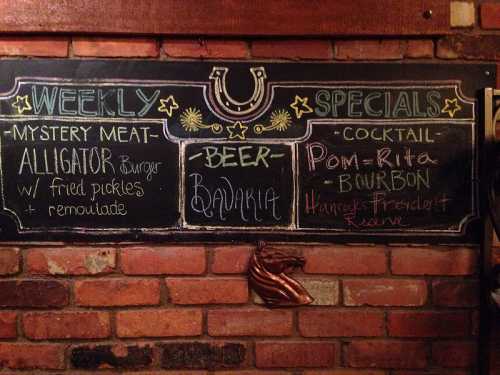 WEEKLY SPECIALS
-MYSTERY MEAT-
ALLIGATOR Burger
w/ fried pickles
+ remoulade
-BEER-
BAVARIA
-COCKTAIL-
Pom-Rita
-BOURBON
President
Reserve